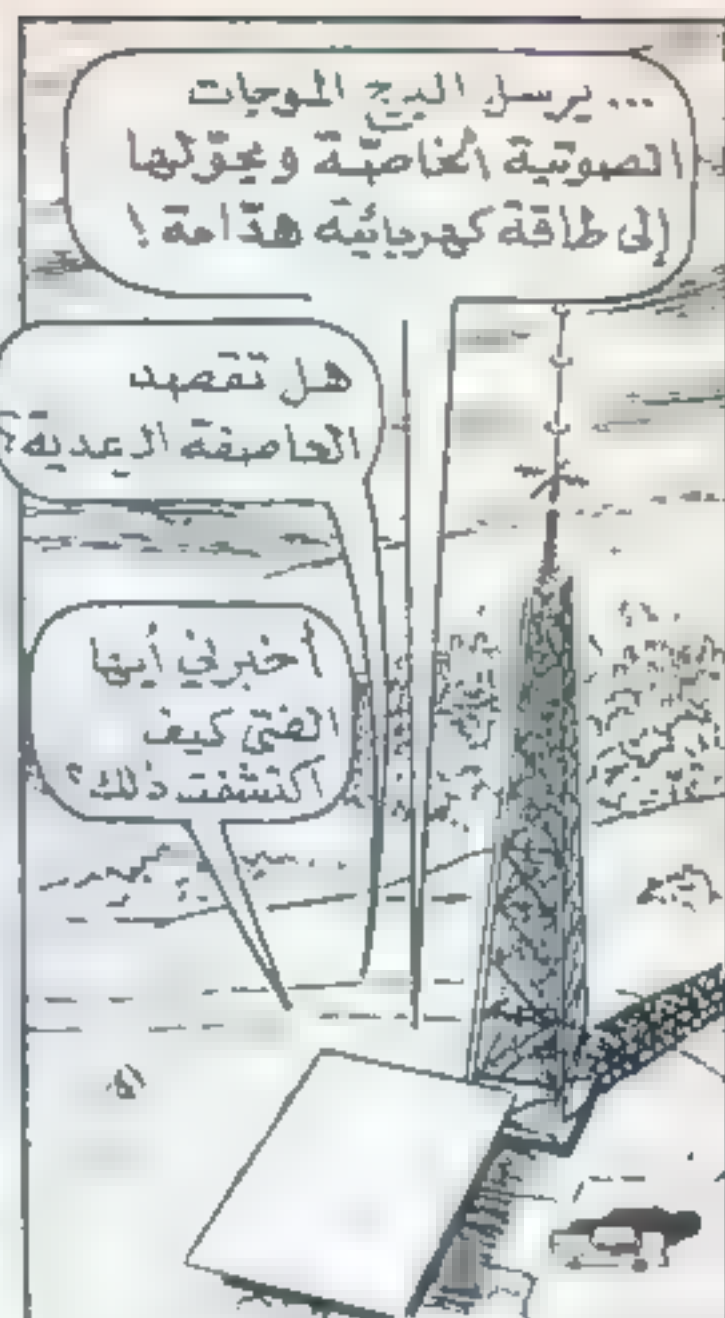 ... يرسل البرج الموجات
الصوتية الخاصّة ويحوّلها
إلى طاقة كهربائية هدّامة !
هل تقصد
العاصفة الرعدية؟
أخبرني أيها
الفتى كيف
اكتشفت ذلك؟